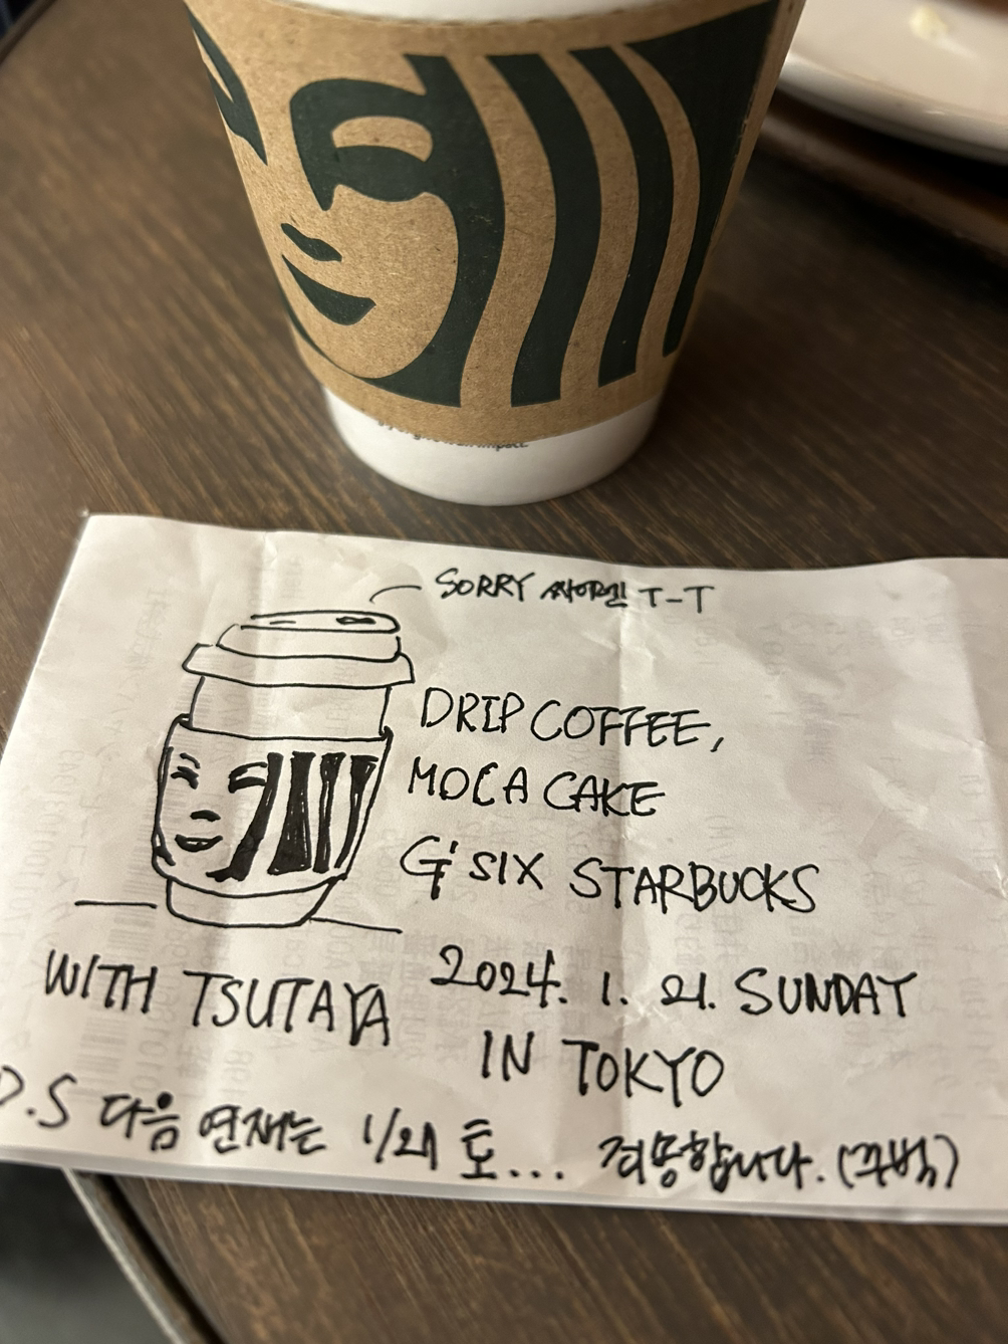 SORRY 싸이렌 T-T
DRIP COFFEE,
MOCA CAKE
G'SIX STARBUCKS
2024. 1. 21. SUNDAY
WITH TSUTAYA
IN TOKYO
P.S 다음 연재는 1/27 토... 죄송합니다. (꾸벅)